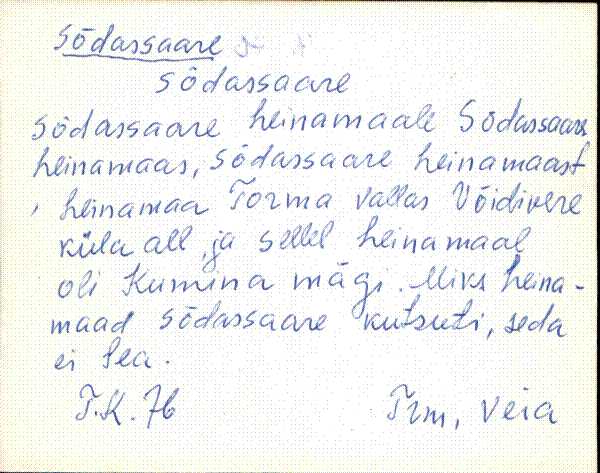 Sõdassaare
sõdassaare
sõdassaare heinamaale Sõdassaare
heinamaas, sõdassaare heinamaast
, heinamaa Torma vallas Võidivere
küla all, ja sellel heinamaal
oli Kumina mägi. Miks heina-
maad sõdassaare kutsuti, seda
ei tea.
T.K. 76
Trm, Veia